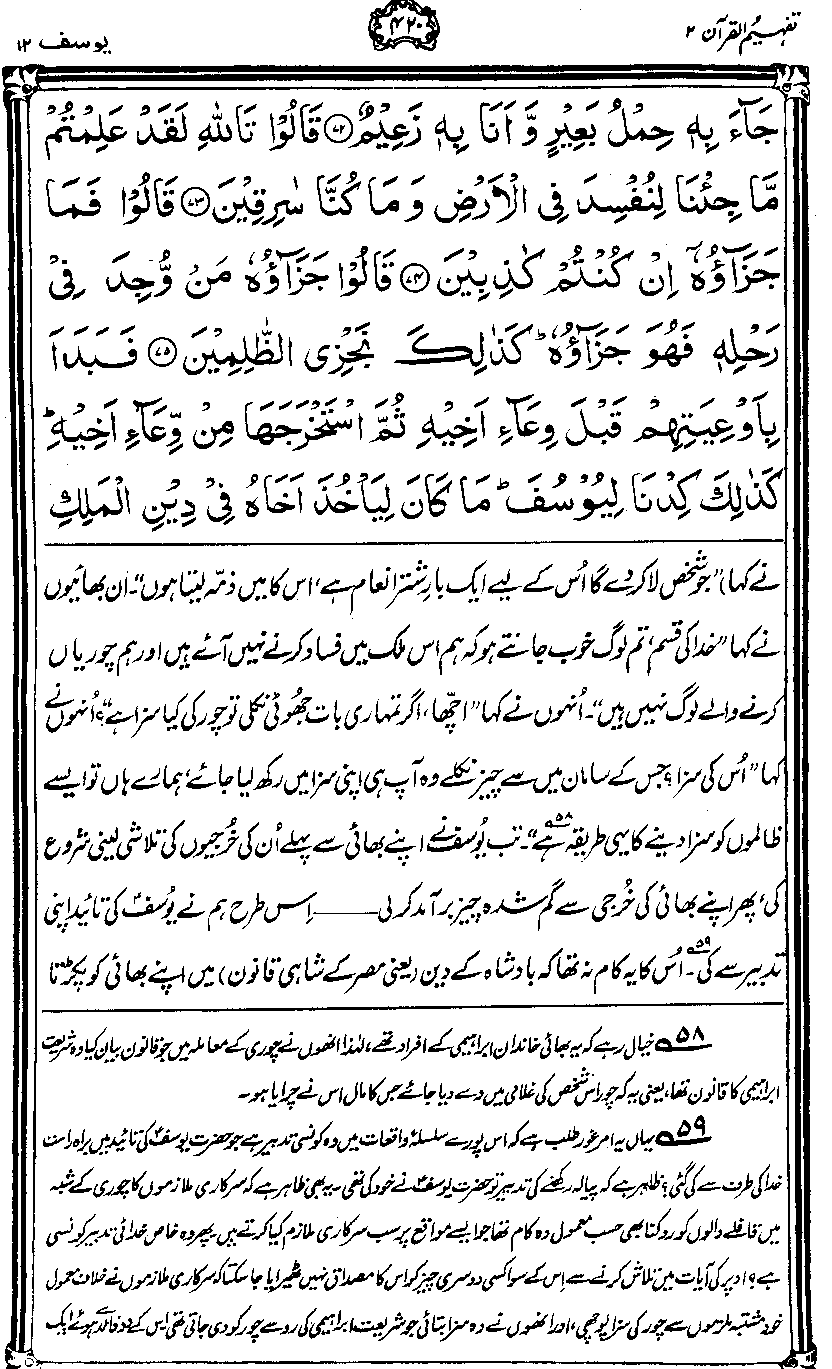 تفہیم القرآن ۲
۴۲۰
یوسف ۱۲
جَآءَ بِهٖ حِمْلُ بَعِيْرٍ وَّ اَنَا بِهٖ زَعِيْمٌ ﴿۷۲﴾ قَالُوْا تَاللّٰهِ لَقَدْ عَلِمْتُمْ
مَّا جِئْنَا لِنُفْسِدَ فِى الْاَرْضِ وَ مَا كُنَّا سٰرِقِيْنَ ﴿۷۳﴾ قَالُوْا فَمَا
جَزَآؤُهٗۤ اِنْ كُنْتُمْ كٰذِبِيْنَ ﴿۷۴﴾ قَالُوْا جَزَآؤُهٗ مَنْ وُّجِدَ فِىْ
رَحْلِهٖ فَهُوَ جَزَآؤُهٗ ؕ كَذٰلِكَ نَجْزِى الظّٰلِمِيْنَ ﴿۷۵﴾ فَبَدَاَ
بِاَوْعِيَتِهِمْ قَبْلَ وِعَآءِ اَخِيْهِ ثُمَّ اسْتَخْرَجَهَا مِنْ وِّعَآءِ اَخِيْهِ ؕ
كَذٰلِكَ كِدْنَا لِيُوْسُفَ ؕ مَا كَانَ لِيَاْخُذَ اَخَاهُ فِىْ دِيْنِ الْمَلِكِ
نے کہا) ”جو شخص لا کر دے گا اُس کے لیے ایک بارِ شتر انعام ہے، اس کا میں ذمّہ لیتا ہوں“۔ ان بھائیوں
نے کہا ”خدا کی قسم، تم لوگ خوب جانتے ہو کہ ہم اس ملک میں فساد کرنے نہیں آئے ہیں اور ہم چوریاں
کرنے والے لوگ نہیں ہیں“۔ اُنہوں نے کہا ”اچھا، اگر تمہاری بات جھوٹی نکلی تو چور کی کیا سزا ہے“؟ اُنہوں نے
کہا ”اُس کی سزا؟ جس کے سامان میں سے چیز نکلے وہ آپ ہی اپنی سزا میں رکھ لیا جائے، ہمارے ہاں تو ایسے
ظالموں کو سزا دینے کا یہی طریقہ ہے۵۸“۔ تب یُوسفؑ نے اپنے بھائی سے پہلے اُن کی خُرجیوں کی تلاشی لینی شروع
کی، پھر اپنے بھائی کی خُرجی سے گم شدہ چیز برآمد کر لی ــــــ اِس طرح ہم نے یُوسفؑ کی تائید اپنی
تدبیر سے کی۵۹۔ اُس کا یہ کام نہ تھا کہ بادشاہ کے دین (یعنی مصر کے شاہی قانون) میں اپنے بھائی کو پکڑتا
۵۸ خیال رہے کہ یہ بھائی خاندان ابراہیمی کے افراد تھے، لہٰذا انھوں نے چوری کے معاملہ میں جو قانون بیان کیا وہ شریعت
ابراہیمی کا قانون تھا، یعنی یہ کہ چور اس شخص کی غلامی میں دے دیا جائے جس کا مال اس نے چرایا ہو۔
۵۹ یہاں یہ امر غور طلب ہے کہ اس پورے سلسلۂ واقعات میں وہ کونسی تدبیر ہے جو حضرت یوسفؑ کی تائید میں براہ راست
خدا کی طرف سے کی گئی؟ ظاہر ہے کہ پیالہ رکھنے کی تدبیر تو حضرت یوسفؑ نے خود کی تھی۔ یہ بھی ظاہر ہے کہ سرکاری ملازموں کا چوری کے شبہ
میں قافلے والوں کو روکنا بھی حسب معمول وہ کام تھا جو ایسے مواقع پر سب سرکاری ملازم کیا کرتے ہیں۔ پھر وہ خاص خدائی تدبیر کونسی
ہے؟ اوپر کی آیات میں تلاش کرنے سے اِس کے سوا کسی دوسری چیز کو اس کا مصداق نہیں ٹھیرایا جا سکتا کہ سرکاری ملازموں نے خلاف معمول
خود مشتبہ ملزموں سے چور کی سزا پوچھی، اور انھوں نے وہ سزا بتائی جو شریعت ابراہیمی کی رو سے چور کو دی جاتی تھی۔ اس کے دو فائدے ہوئے ایک